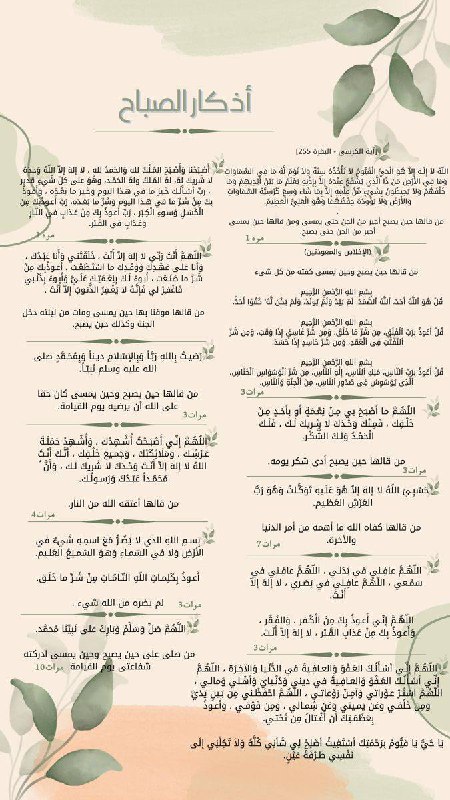 أذكار الصباح
(آية الكرسي - البقرة 255)
اللّهُ لاَ إِلَهَ إِلاَّ هُوَ الْحَيُّ الْقَيُّومُ لاَ تَأْخُذُهُ سِنَةٌ وَلاَ نَوْمٌ لَّهُ مَا فِي السَّمَاوَاتِ
وَمَا فِي الأَرْضِ مَن ذَا الَّذِي يَشْفَعُ عِنْدَهُ إِلاَّ بِإِذْنِهِ يَعْلَمُ مَا بَيْنَ أَيْدِيهِمْ وَمَا
خَلْفَهُمْ وَلاَ يُحِيطُونَ بِشَيْءٍ مِّنْ عِلْمِهِ إِلاَّ بِمَا شَاء وَسِعَ كُرْسِيُّهُ السَّمَاوَاتِ
وَالأَرْضَ وَلاَ يَؤُودُهُ حِفْظُهُمَا وَهُوَ الْعَلِيُّ الْعَظِيمُ
من قالها حين يصبح أجير من الجن حتى يمسى ومن قالها حين يمسى
أجير من الجن حتى يصبح
مرة 1
(الإخلاص والمعوذتين)
من قالها حين يصبح وحين يمسى كفته من كل شىء
بِسْمِ اللهِ الرَّحْمنِ الرَّحِيم
قُلْ هُوَ ٱللَّهُ أَحَدٌ، ٱللَّهُ ٱلصَّمَدُ، لَمْ يَلِدْ وَلَمْ يُولَدْ، وَلَمْ يَكُن لَّهُۥ كُفُوًا أَحَدٌۢ.
بِسْمِ اللهِ الرَّحْمنِ الرَّحِيم
قُلْ أَعُوذُ بِرَبِّ ٱلْفَلَقِ، مِن شَرِّ مَا خَلَقَ، وَمِن شَرِّ غَاسِقٍ إِذَا وَقَبَ، وَمِن شَرِّ
ٱلنَّفَّٰثَٰتِ فِى ٱلْعُقَدِ، وَمِن شَرِّ حَاسِدٍ إِذَا حَسَدَ.
بِسْمِ اللهِ الرَّحْمنِ الرَّحِيم
قُلْ أَعُوذُ بِرَبِّ ٱلنَّاسِ، مَلِكِ ٱلنَّاسِ، إِلَٰهِ ٱلنَّاسِ، مِن شَرِّ ٱلْوَسْوَاسِ ٱلْخَنَّاسِ،
ٱلَّذِى يُوَسْوِسُ فِى صُدُورِ ٱلنَّاسِ، مِنَ ٱلْجِنَّةِ وَٱلنَّاسِ.
3 مرات
اللَّهُمَّ مَا أَصْبَحَ بِي مِنْ نِعْمَةٍ أَوْ بِأَحَدٍ مِنْ
خَلْقِكَ ، فَمِنْكَ وَحْدَكَ لا شَرِيكَ لَكَ ، فَلَكَ
الْحَمْدُ وَلَكَ الشُّكْرُ.
من قالها حين يصبح أدى شكر يومه.
3 مرات
حَسْبِيَ اللّهُ لا إِلَهَ إِلاَّ هُوَ عَلَيْهِ تَوَكَّلْتُ وَهُوَ رَبُّ
الْعَرْشِ الْعَظِيمِ.
من قالها كفاه الله ما أهمه من أمر الدنيا
والأخرة.
7 مرات
اللَّهُمَّ عَافِنِي فِي بَدَنِي ، اللَّهُمَّ عَافِنِي فِي
سَمْعِي ، اللَّهُمَّ عَافِنِي فِي بَصَرِي ، لا إِلَهَ إِلاَّ
أَنْتَ.
اللَّهُمَّ إِنِّي أَعُوذُ بِكَ مِنَ الْكُفْرِ ، وَالْفَقْرِ ،
وَأَعُوذُ بِكَ مِنْ عَذَابِ الْقَبْرِ ، لا إِلَهَ إِلاَّ أَنْتَ.
3 مرات
اللَّهُمَّ إِنِّي أَسْأَلُكَ الْعَفْوَ وَالْعَافِيَةَ فِي الدُّنْيَا وَالآخِرَةِ ، اللَّهُمَّ
إِنِّي أَسْأَلُكَ الْعَفْوَ وَالْعَافِيَةَ فِي دِينِي وَدُنْيَايَ وَأَهْلِي وَمَالِي ،
اللَّهُمَّ اسْتُرْ عَوْرَاتِي وَآمِنْ رَوْعَاتِي ، اللَّهُمَّ احْفَظْنِي مِنْ بَيْنِ يَدَيَّ
وَمِنْ خَلْفِي وَعَنْ يَمِينِي وَعَنْ شِمَالِي ، وَمِنْ فَوْقِي ، وَأَعُوذُ
بِعَظَمَتِكَ أَنْ أُغْتَالَ مِنْ تَحْتِي.
يَا حَيُّ يَا قيُّومُ بِرَحْمَتِكَ أَسْتَغِيثُ أَصْلِحْ لِي شَأْنِي كُلَّهُ وَلاَ تَكِلْنِي إِلَى
نَفْسِي طَرْفَةَ عَيْنٍ.
أَصْبَحْنا وَأَصْبَحَ المُلْكُ لله وَالحَمدُ لله ، لا إلهَ إلاّ اللّهُ وَحدَهُ
لا شَريكَ لهُ، لهُ المُلكُ ولهُ الحَمْد، وهُوَ على كلّ شَيءٍ قدير
، رَبِّ أسْألُكَ خَيرَ ما في هذا اليوم وَخَيرَ ما بَعْدَه ، وَأَعوذُ
بِكَ مِنْ شَرِّ ما في هذا اليوم وَشَرِّ ما بَعْدَه، رَبِّ أَعوذُبِكَ مِنَ
الْكَسَلِ وَسوءِ الْكِبَر ، رَبِّ أَعوذُ بِكَ مِنْ عَذابٍ في النّارِ
وَعَذابٍ في القَبْر.
مرة 1
اللّهمَّ أَنْتَ رَبِّي لا إلهَ إلاّ أَنْتَ ، خَلَقْتَني وَأَنا عَبْدُك ،
وَأَنا عَلى عَهْدِكَ وَوَعْدِكَ ما اسْتَطَعْت ، أَعوذُبِكَ مِنْ
شَرِّ ما صَنَعْت ، أَبوءُ لَكَ بِنِعْمَتِكَ عَلَيَّ وَأَبوءُ بِذَنْبي
فَاغْفِرْ لي فَإِنَّهُ لا يَغْفِرُ الذُّنوبَ إِلاّ أَنْتَ .
من قالها موقنا بها حين يمسى ومات من ليلته دخل
الجنة وكذلك حين يصبح.
رَضيتُ بِاللهِ رَبَّاً وَبِالإسْلامِ ديناً وَبِمُحَمَّدٍ صلى
الله عليه وسلم نَبِيّاً.
من قالها حين يصبح وحين يمسى كان حقا
على الله أن يرضيه يوم القيامة.
3 مرات
اللّهُمَّ إِنِّي أَصْبَحْتُ أُشْهِدُك ، وَأُشْهِدُ حَمَلَةَ
عَرْشِك ، وَمَلَائِكَتَكَ ، وَجَميعَ خَلْقِك ، أَنَّكَ أَنْتَ
اللهُ لا إلهَ إلاّ أَنْتَ وَحْدَكَ لا شَريكَ لَك ، وَأَنَّ
مُحَمّداً عَبْدُكَ وَرَسولُك.
من قالها أعتقه الله من النار.
4 مرات
بِسمِ اللهِ الذي لا يَضُرُّ مَعَ اسمِهِ شَيءٌ في
الأرْضِ وَلا في السّماءِ وَهوَ السّميعُ العَليم.
أَعوذُ بِكَلِمَاتِ اللّهِ التَّامَّاتِ مِنْ شَرِّ مَا خَلَق.
لم يضره من الله شيء .
3 مرات
اللَّهُمَّ صَلِّ وَسَلِّمْ وَبَارِكْ على نَبِيِّنَا مُحمَّد.
من صلى على حين يصبح وحين يمسى ادركته
شفاعتى يوم القيامة.
10 مرات